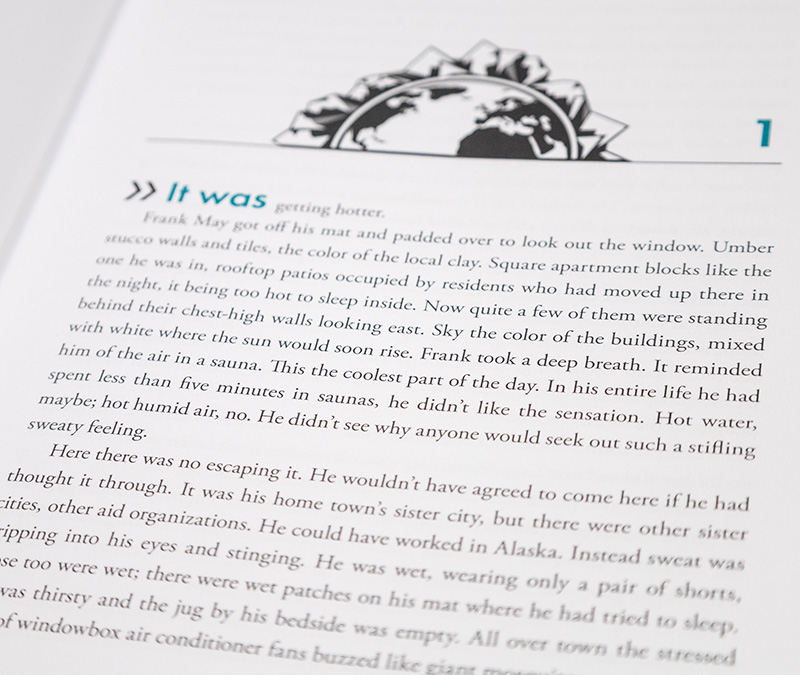 1
>> It was getting hotter.
Frank May got off his mat and padded over to look out the window. Umber
stucco walls and tiles, the color of the local clay. Square apartment blocks like the
one he was in, rooftop patios occupied by residents who had moved up there in
the night, it being too hot to sleep inside. Now quite a few of them were standing
behind their chest-high walls looking east. Sky the color of the buildings, mixed
with white where the sun would soon rise. Frank took a deep breath. It reminded
him of the air in a sauna. This the coolest part of the day. In his entire life he had
spent less than five minutes in saunas, he didn't like the sensation. Hot water,
maybe; hot humid air, no. He didn't see why anyone would seek out such a stifling
sweaty feeling.
Here there was no escaping it. He wouldn't have agreed to come here if he had
thought it through. It was his home town's sister city, but there were other sister
cities, other aid organizations. He could have worked in Alaska. Instead sweat was
ripping into his eyes and stinging. He was wet, wearing only a pair of shorts,
se too were wet; there were wet patches on his mat where he had tried to sleep.
was thirsty and the jug by his bedside was empty. All over town the stressed
of windowbox air conditioner fans buzzed like giant